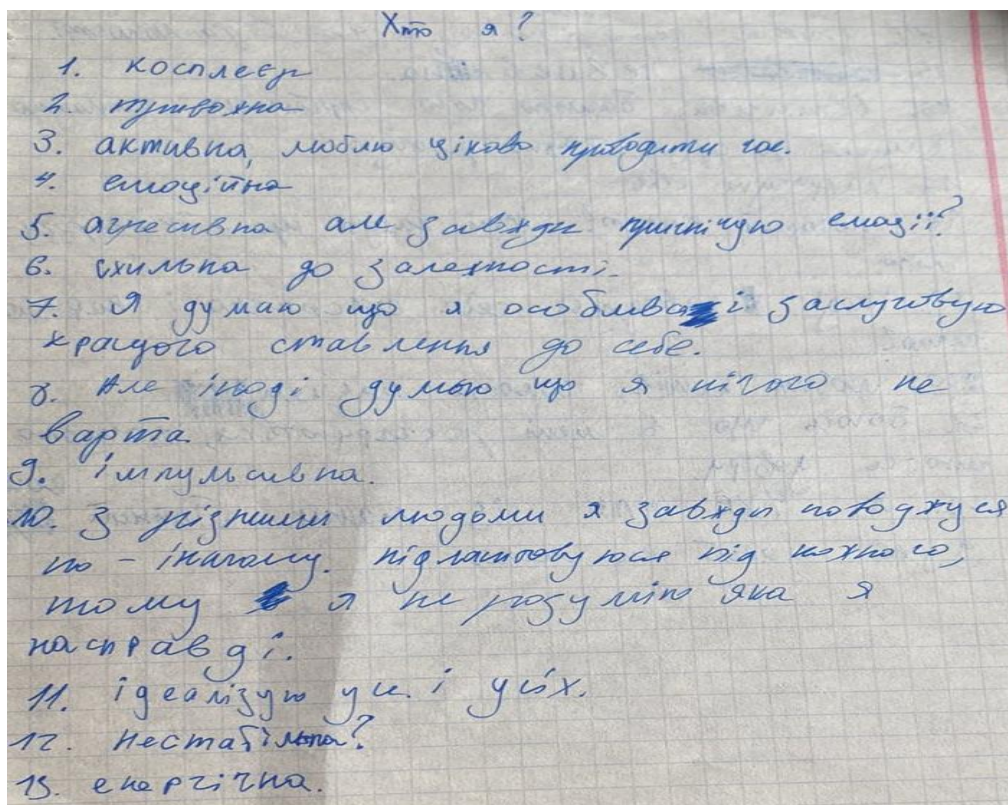 Хто я?
1. косплеєр
2. тривожна
3. активна, люблю цікаво проводити час.
4. емоційна
5. агресивна але завжди пригнічую емоції?
6. схильна до залежності.
7. Я думаю що я особлива і заслуговую
кращого ставлення до себе.
8. Але іноді думаю що я нічого не
варта.
9. імпульсивна.
10. З різними людьми я завжди поводжуся
по-іншому. підлаштовуюся під кожного,
тому я не розумію яка я
насправді.
11. ідеалізую усе і усіх.
12. нестабільна?
13. енергічна.